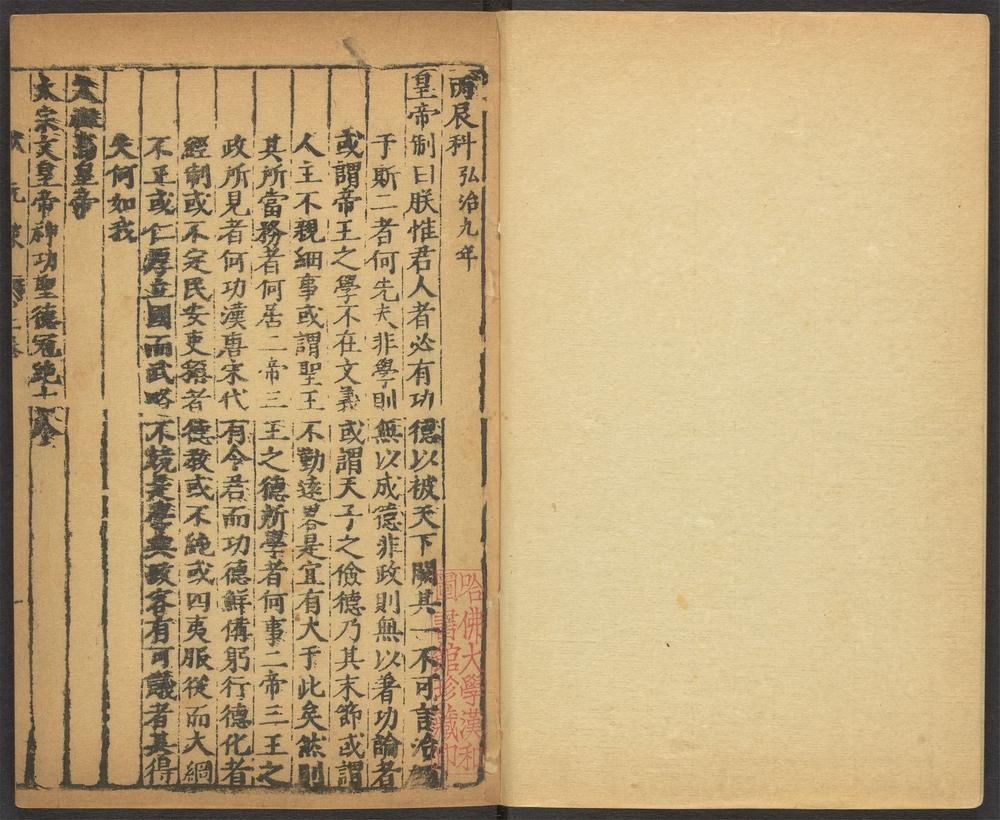 丙辰科 弘治九年
皇帝制曰朕惟君人者必有功德以被天下闕其一不可言治
于斯二者何先夫非學則無以成德非政則無以著功論者
或謂帝王之學不在文義或謂天子之儉德乃其末節或謂
人主不親細事或謂聖王不勤遠畧是宜有大于此矣然則
其所當務者何居二帝三王之德所學者何事二帝三王之
政所見者何功漢唐宋代有令君而功德鮮備躬行德化者
經制或不定民安吏稱者德教或不純或四夷服從而大綱
不正或仁厚立國而武略不競是學與政容有可議者其得
失何如我
太祖高皇帝
太宗文皇帝神功聖德冠絶
哈佛大學漢和
圖書館珍藏印